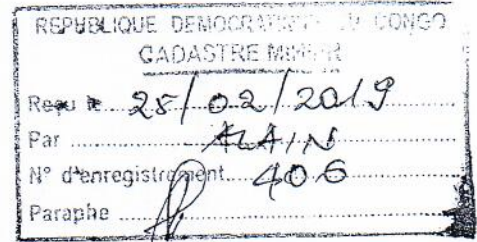 REPUBLIQUE DEMOCRATIQUE DU CONGO
CADASTRE MINIER
Reçu le 25/02/2019
Par ALAIN
N° d'enregistrement 406
Paraphe